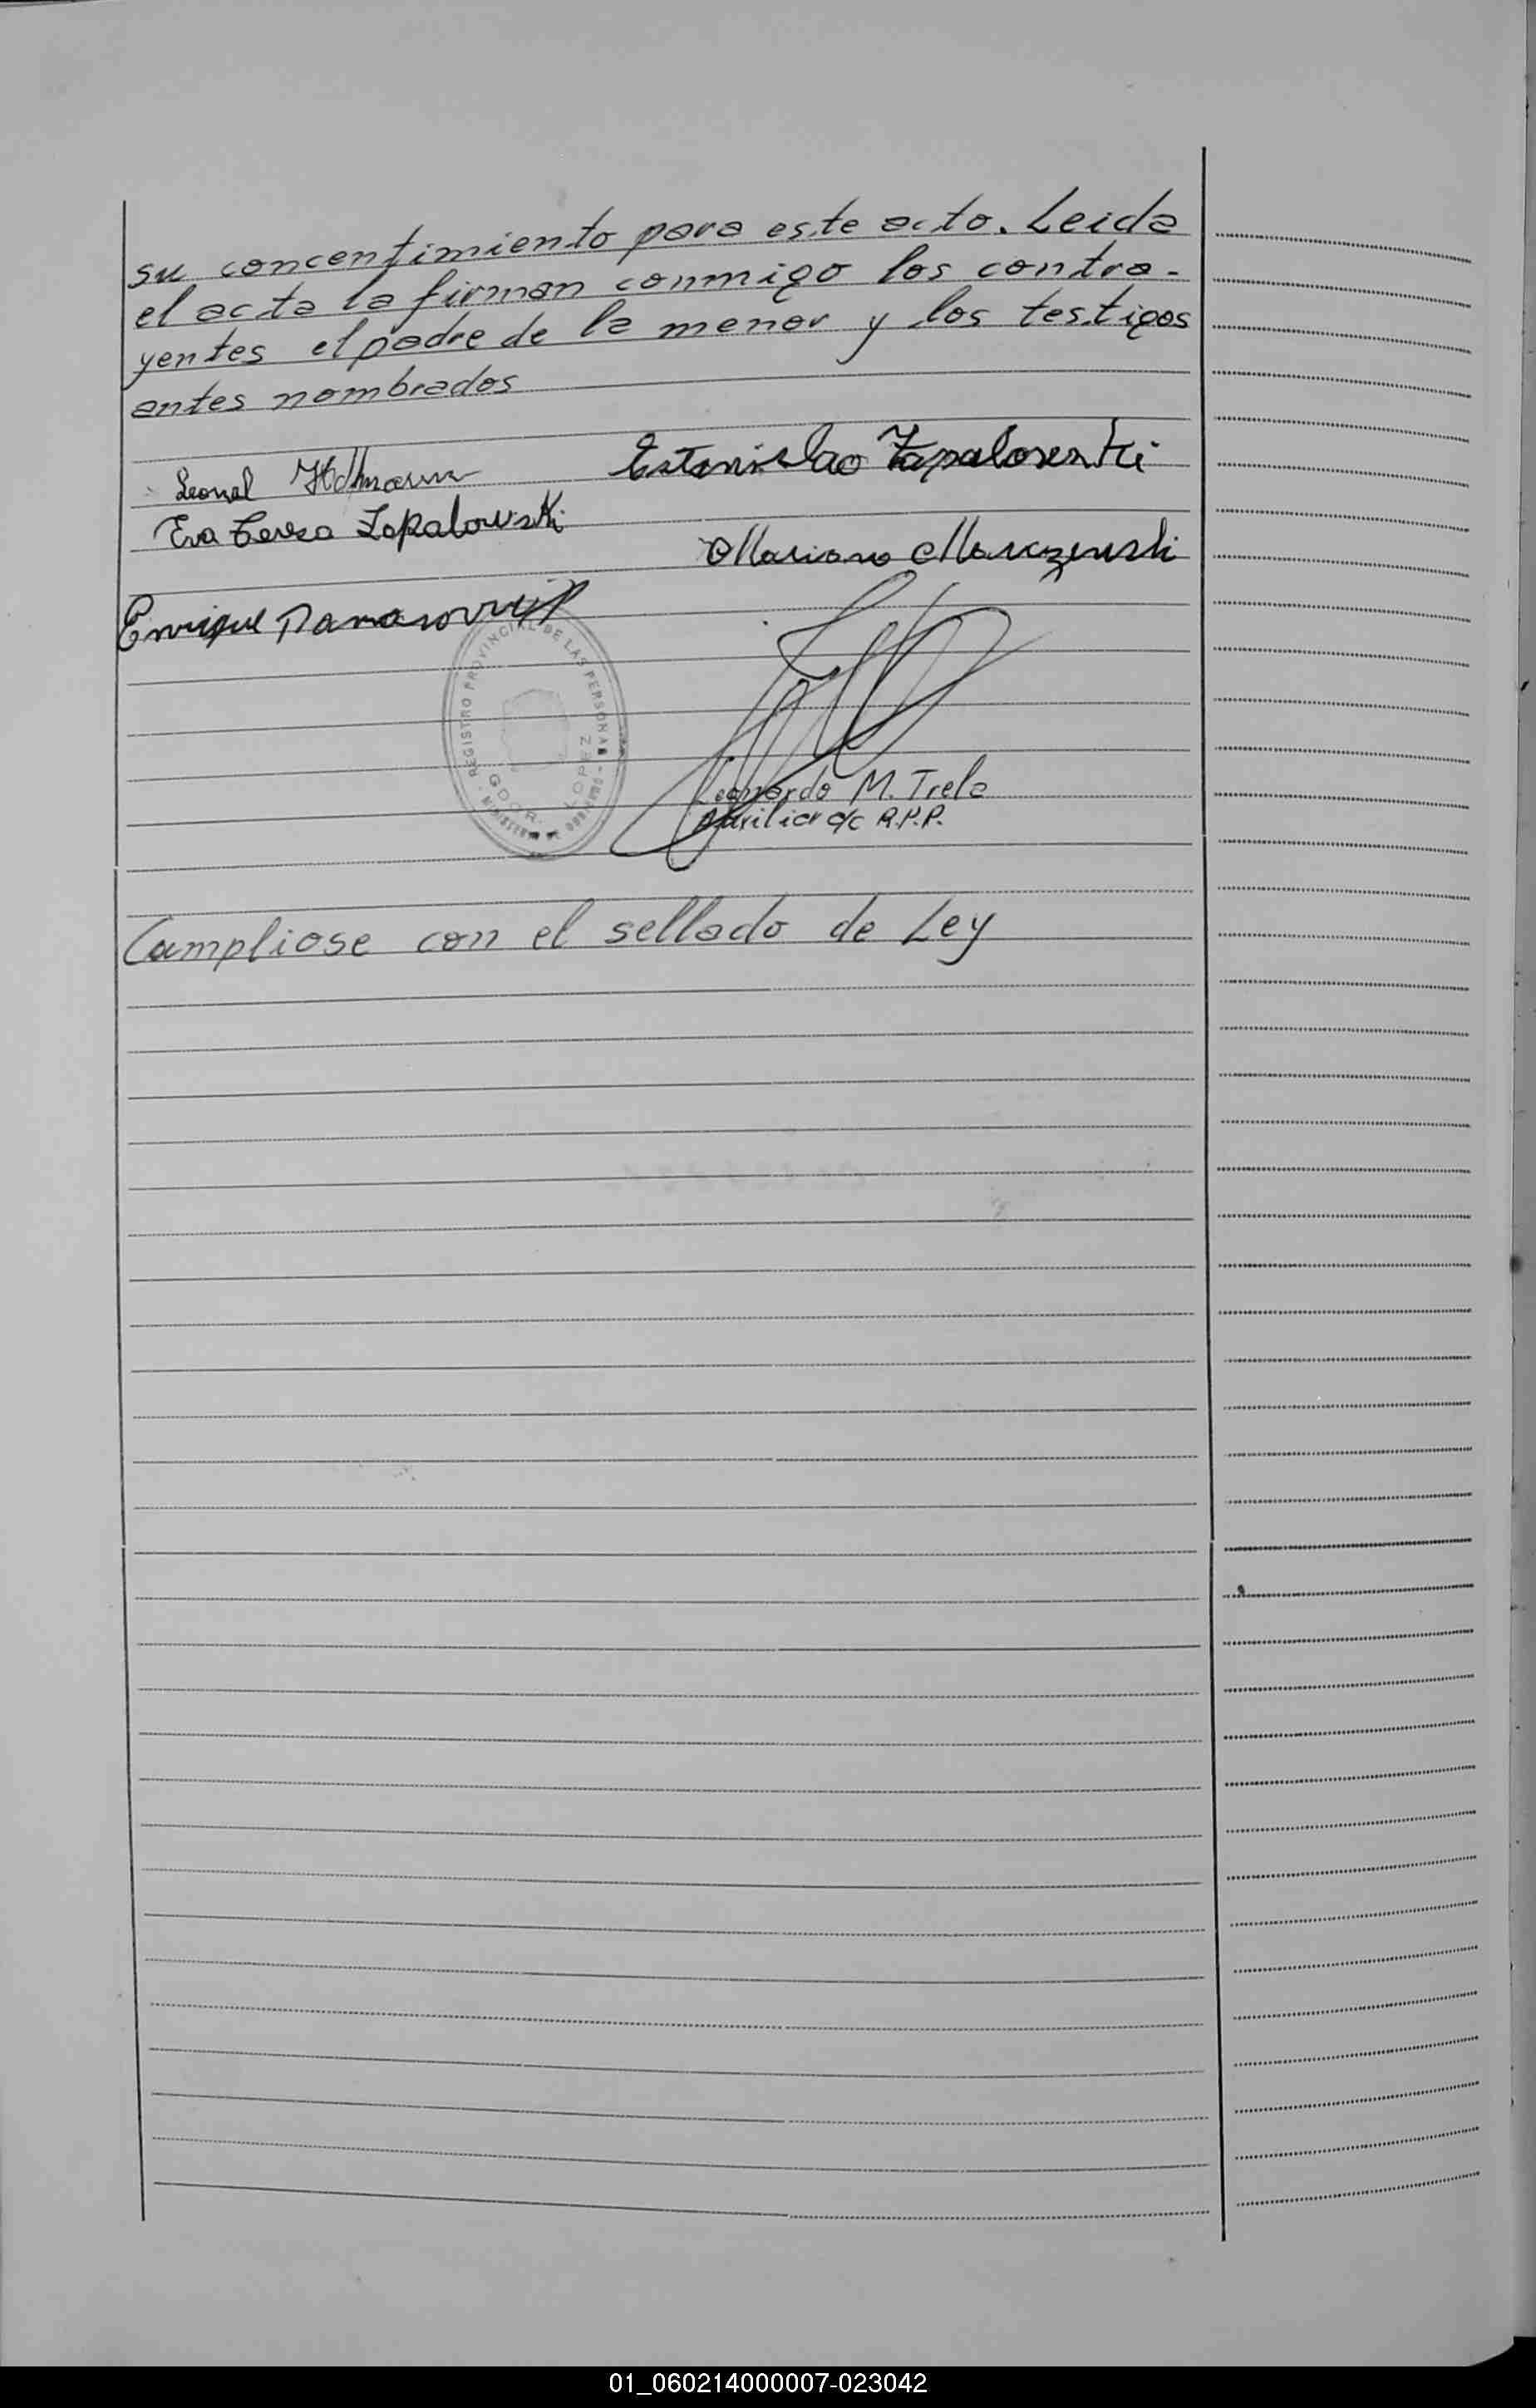 su concentimiento para este acto. Leida
el acta la firman conmigo los contra-
yentes el padre de la menor y los testigos
antes nombrados
Leonel
Estanislao Zapalowski
Eva Teresa Zapalowski
Mariano Marczewski
Enrique
REGISTRO PROVINCIAL DE LAS PERSONAS
GDOR. LOPEZ
Leonardo M. Trela
Auxiliar a/c R.P.P.
Campliose con el sellado de Ley
01_060214000007-023042